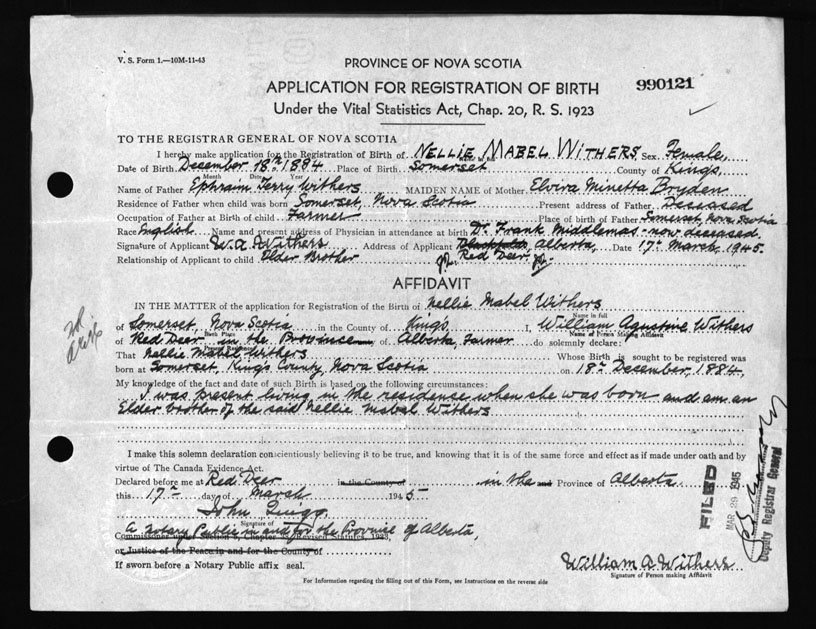 V. S. Form 1.—10M-11-43
PROVINCE OF NOVA SCOTIA
APPLICATION FOR REGISTRATION OF BIRTH
990121
Under the Vital Statistics Act, Chap. 20, R. S. 1923
TO THE REGISTRAR GENERAL OF NOVA SCOTIA
I hereby make application for the Registration of Birth of NELLIE MABEL WITHERS Sex Female
Date of Birth December 18th 1884 Place of Birth Somerset County of Kings
Month Date Year
Name of Father Ephraim Terry Withers MAIDEN NAME of Mother Elvira Minetta Bryden
Residence of Father when child was born Somerset, Nova Scotia Present address of Father Deseased
Occupation of Father at Birth of child Farmer Place of birth of Father Somerset, Nova Scotia
Race English Name and present address of Physician in attendance at birth Dr. Frank Middlemas - now deseased
Signature of Applicant W. A. Withers Address of Applicant Blackfalds, Alberta, Date 17th March 1945.
Relationship of Applicant to child Elder Brother Red Deer
AFFIDAVIT
IN THE MATTER of the application for Registration of the Birth of Nellie Mabel Withers
Name in full
of Somerset, Nova Scotia in the County of Kings I, William Agustine Withers
Birth Place Name of Person Making Affidavit
of Red Deer in the Province of Alberta, Farmer do solemnly declare:
Present Residence
That Nellie Mabel Withers Whose Birth is sought to be registered was
born at Somerset, King's County, Nova Scotia on 18th December, 1884,
My knowledge of the fact and date of such Birth is based on the following circumstances:
I was present living in the residence when she was born and am an
Elder brother of the said Nellie Mabel Withers
I make this solemn declaration conscientiously believing it to be true, and knowing that it is of the same force and effect as if made under oath and by
virtue of The Canada Evidence Act.
Declared before me at Red Deer in the County of in the and Province of Alberta
this 17th day of March 1945
John Quigg
Signature of
A Notary Public in and for the Province of Alberta,
Commissioner under Chapter Revised Statutes, 1923
or Justice of the Peace in and for the County of
If sworn before a Notary Public affix seal.
William A Withers
Signature of Person making Affidavit
For Information regarding the filling out of this Form, see Instructions on the reverse side
FILED
MAR 29 1945
Deputy Registrar General